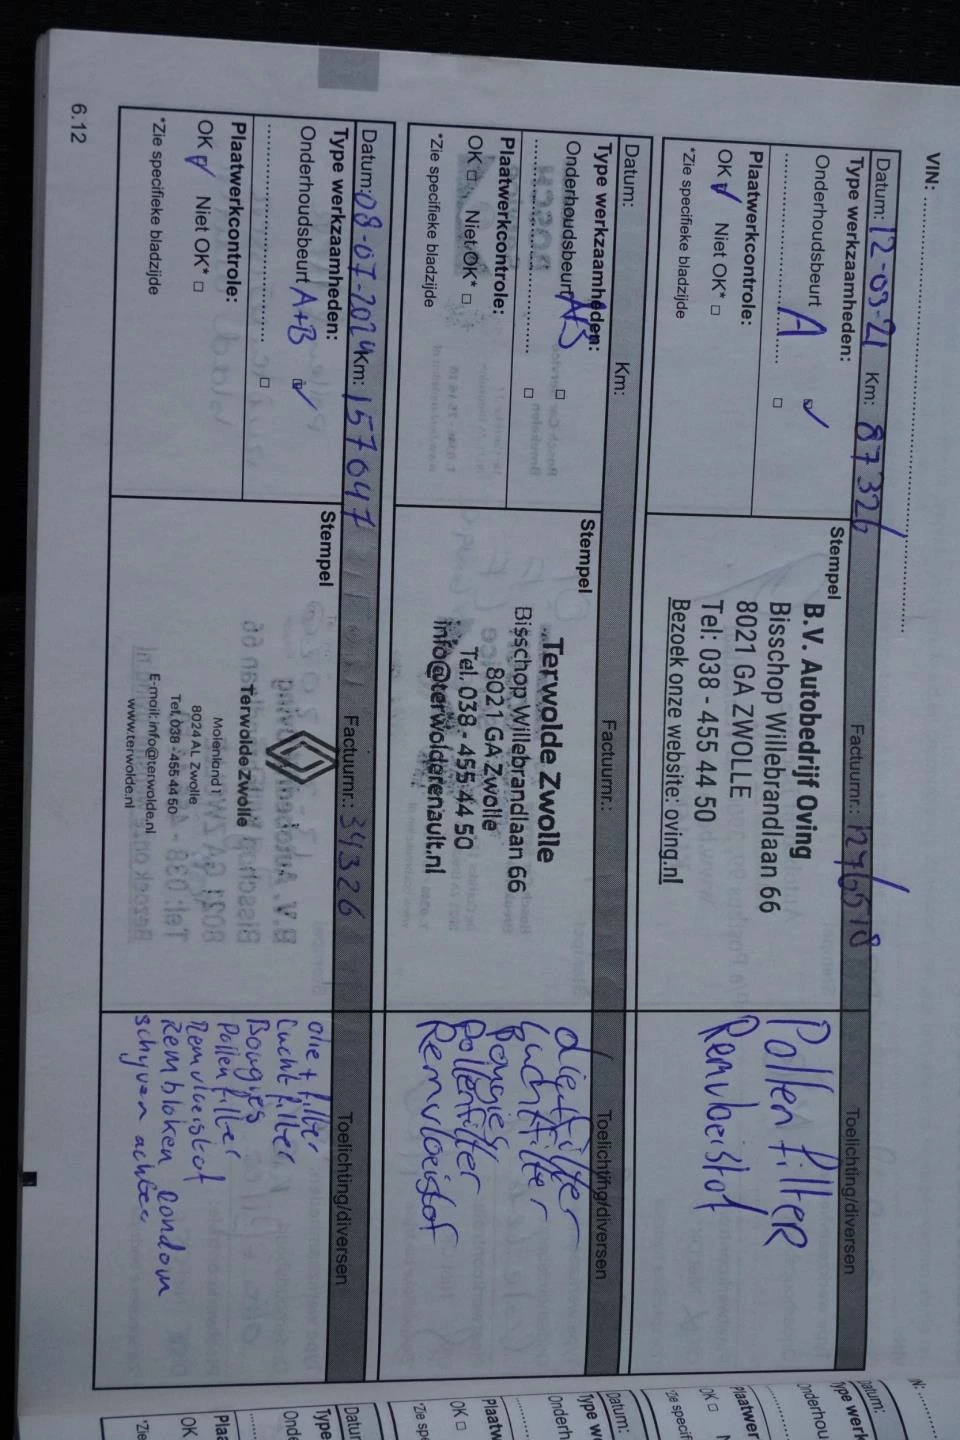 VIN: ........................................
Datum: 12-03-21 Km: 87326 Factuurnr.: Toelichting/diversen
Type werkzaamheden:
Onderhoudsbeurt A
Plaatwerkcontrole:
OK Niet OK*
*Zie specifieke bladzijde
Stempel
B.V. Autobedrijf Oving
Bisschop Willebrandlaan 66
8021 GA ZWOLLE
Tel: 038 - 455 44 50
Bezoek onze website: oving.nl
Pollenfilter
Remvloeistof
Datum: Km: Factuurnr.: Toelichting/diversen
Type werkzaamheden:
Onderhoudsbeurt
Plaatwerkcontrole:
OK Niet OK*
*Zie specifieke bladzijde
Stempel
Terwolde Zwolle
Bisschop Willebrandlaan 66
8021 GA Zwolle
Tel. 038 - 455 44 50
info@terwolderenault.nl
oliefilter
Luchtfilter
Bougies
Pollenfilter
Remvloeistof
Datum: 08-07-2024 Km: 157047 Factuurnr.: 34326 Toelichting/diversen
Type werkzaamheden:
Onderhoudsbeurt A+B
Plaatwerkcontrole:
OK Niet OK*
*Zie specifieke bladzijde
Stempel
Terwolde Zwolle
Molenland 1
8024 AL Zwolle
Tel. 038 - 455 44 50
E-mail: info@terwolde.nl
www.terwolde.nl
olie + filter
Luchtfilter
Bougies
Pollenfilter
Remvloeistof
Remblokken rondom
schyven achter
6.12